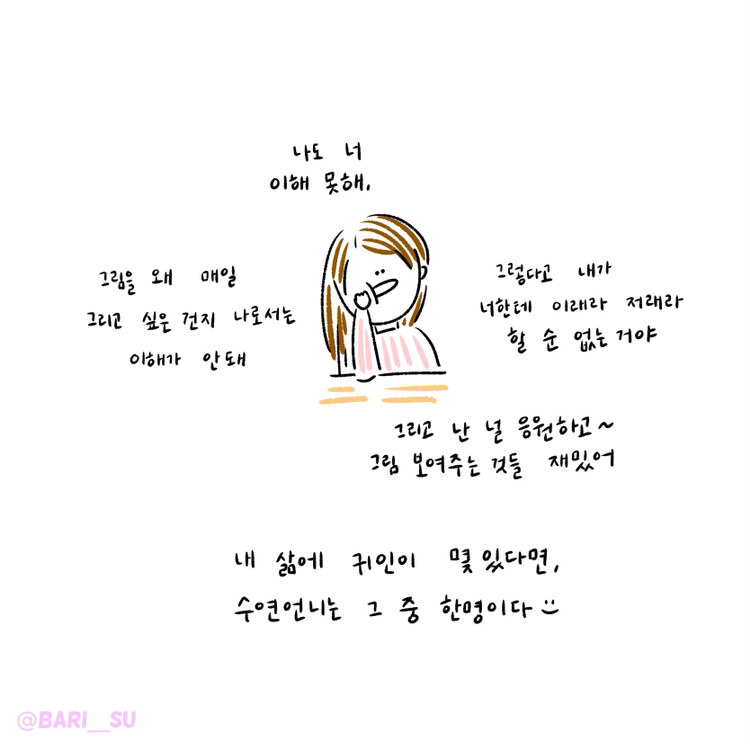 나도 너
이해 못해.
그림을 왜 매일
그리고 싶은 건지 나로서는
이해가 안돼
그렇다고 내가
너한테 이래라 저래라
할 순 없는거야
그리고 난 널 응원하고~
그림 보여주는 것들 재밌어
내 삶에 귀인이 몇 있다면,
수연언니는 그 중 한명이다
@BARI__SU